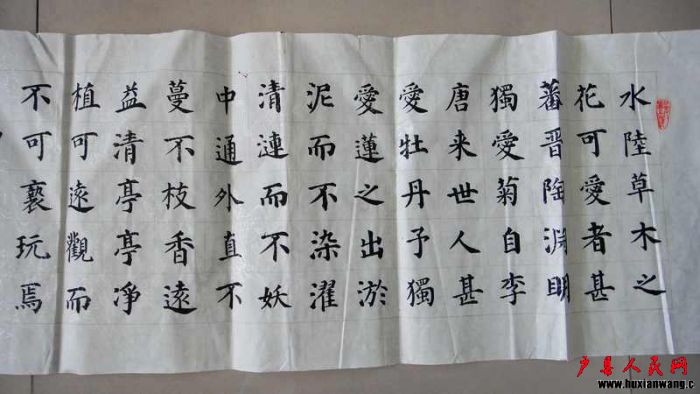 水陸草木之
花可愛者甚
蕃晋陶淵明
獨愛菊自李
唐来世人甚
愛牡丹予獨
愛蓮之出淤
泥而不染濯
清漣而不妖
中通外直不
蔓不枝香遠
益清亭亭淨
植可遠觀而
不可褻玩焉
户县人民网
www.huxianwang.c